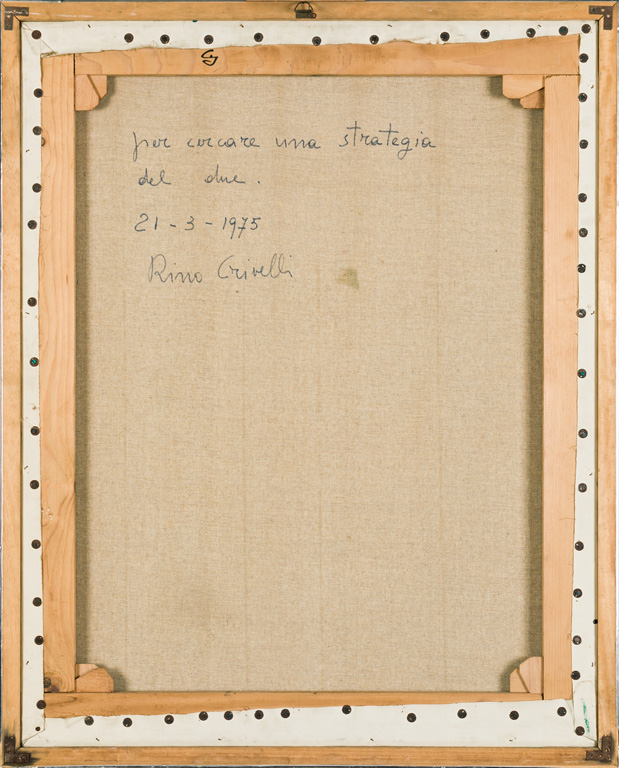 per cercare una strategia
del due.
21-3-1975
Rino Crivelli